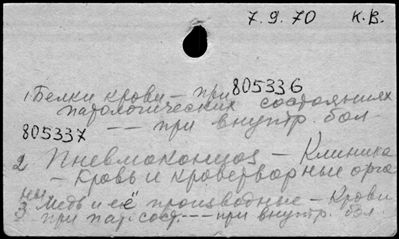 7.9.70 К.В.
805336
1. Белки крови – при
патологических состояниях
805337
— — при внутр. бол.
2 Пневмокониоз – Клиника
– Кровь и кроветворные орга
ны
3 Медь и её производные – Крови
при пат. сост. --- при внутр. бол.